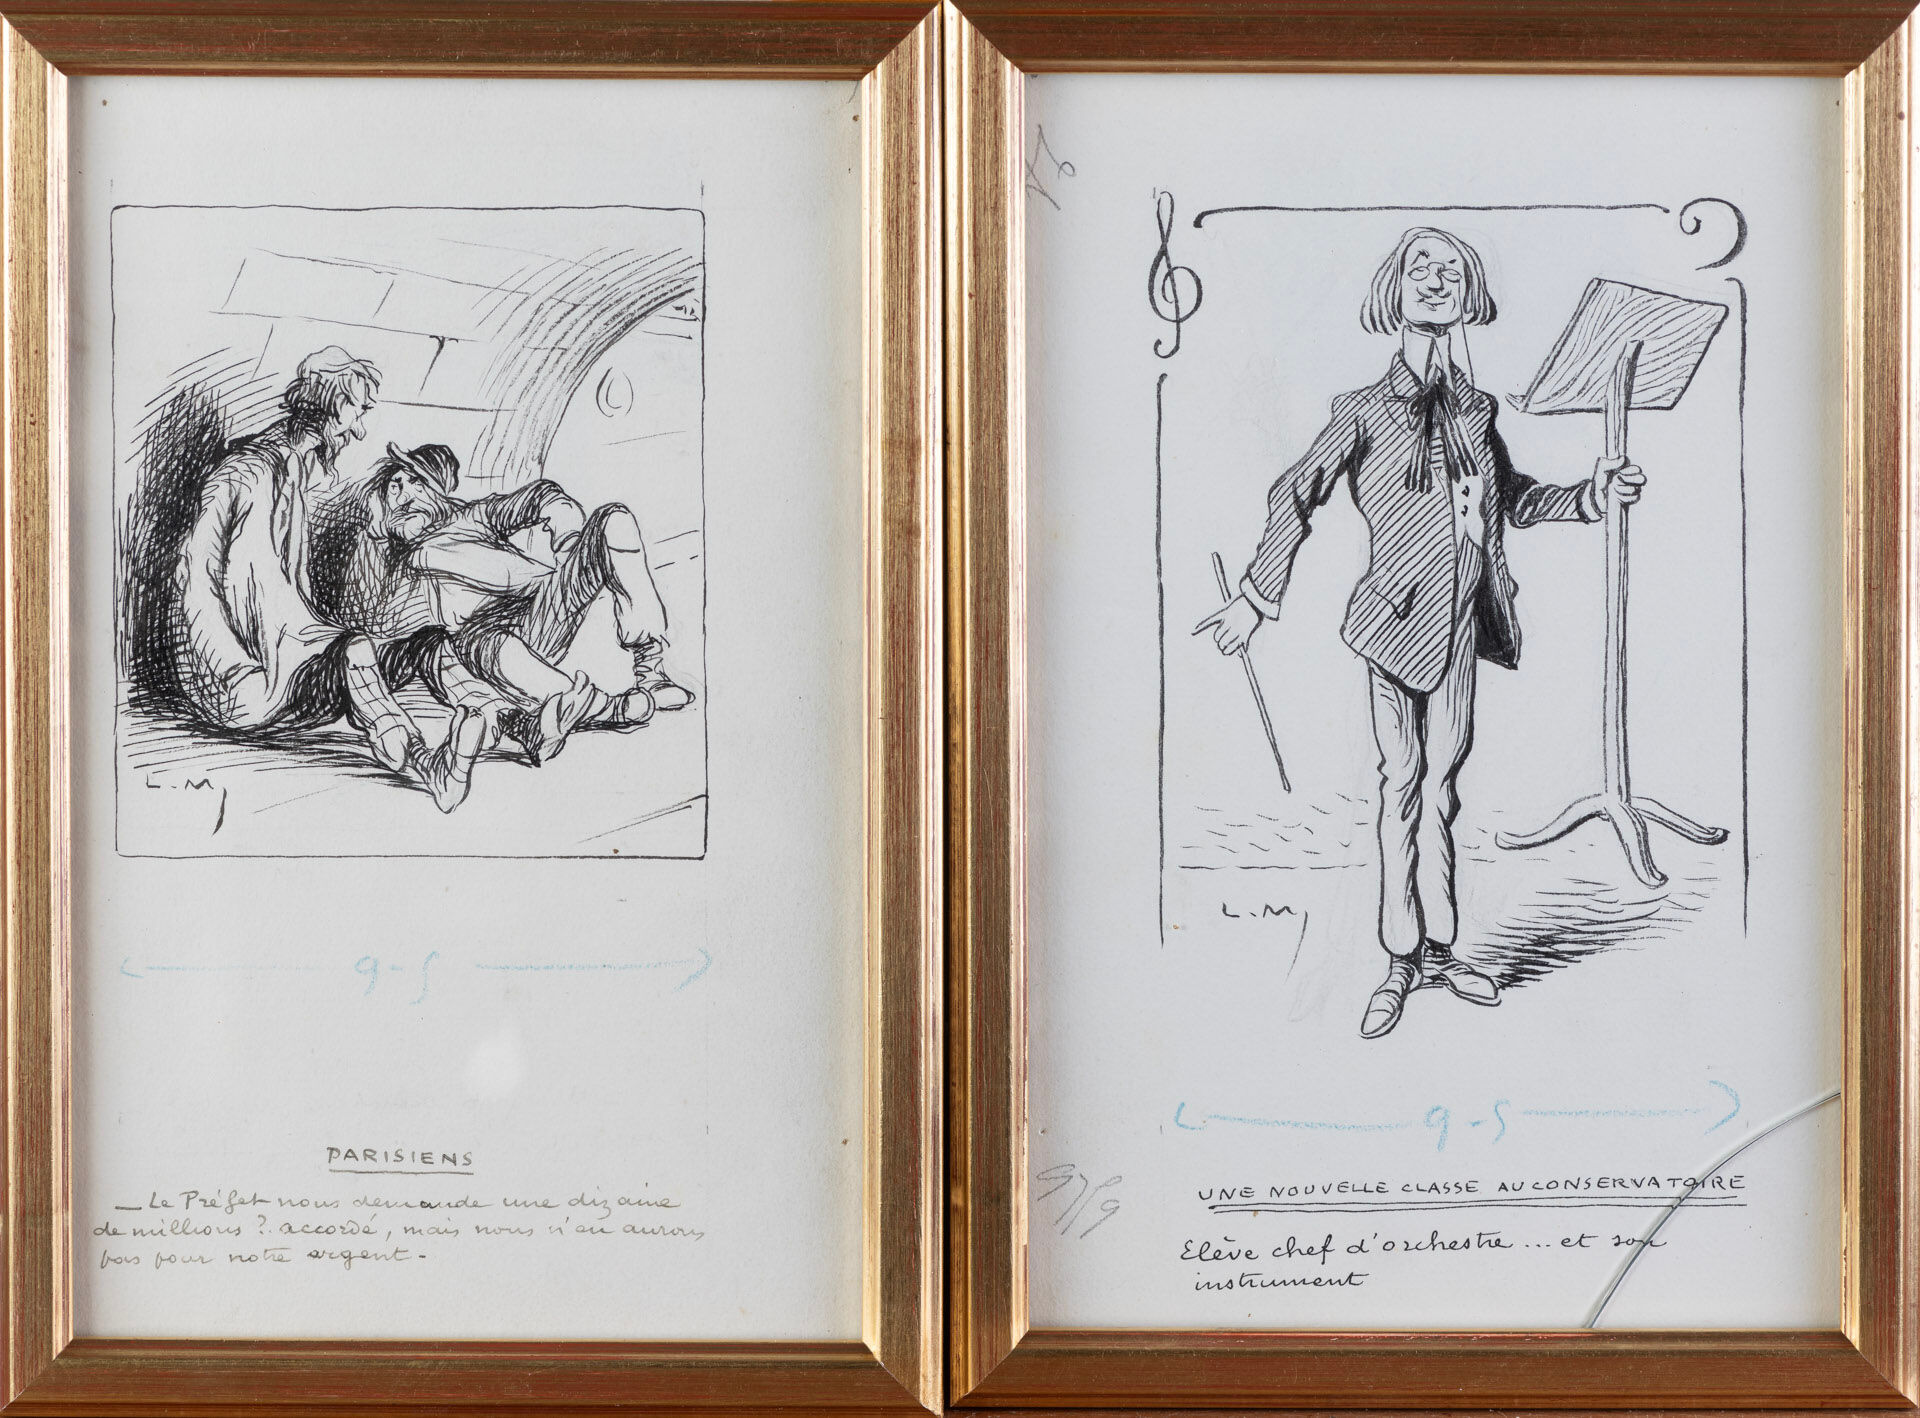 L.M
9-5
PARISIENS
— Le Préfet nous demande une dizaine
de millions ? accordé, mais nous n'en aurons
pas pour notre argent -
L.M
9-5
UNE NOUVELLE CLASSE AU CONSERVATOIRE
Elève chef d'orchestre ... et son
instrument